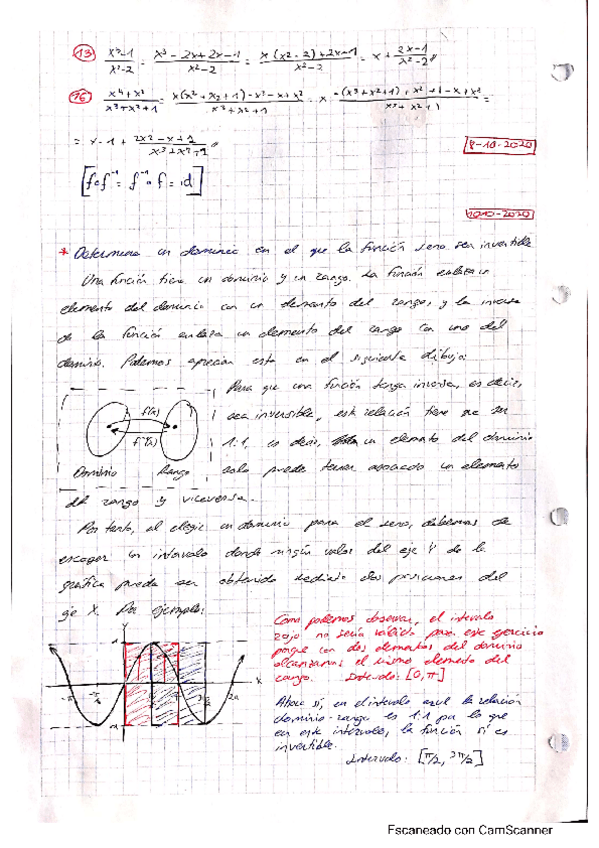 13) x³-1 / x²-2 = x³ - 2x + 2x - 1 / x²-2 = x(x²-2)+2x-1 / x²-2 = x + 2x-1 / x²-2
16) x⁴+x² / x³+x²+1 = x(x³+x²+1)-x³-x+x² / x³+x²+1 = x + -(x³+x²+1)+x²+1-x+x² / x³+x²+1 =
= x-1 + 2x²-x+1 / x³+x²+1
8-10-2020
[f∘f⁻¹ = f⁻¹∘f = id]
10-10-2020
* Determina un dominio en el que la función seno sea invertible
Una función tiene un dominio y un rango. La función enlaza un
elemento del dominio con un elemento del rango, y la inversa
de la función enlaza un elemento del rango con uno del
dominio. Podemos apreciar esto en el siguiente dibujo:
Para que una función tenga inversa, es decir,
sea inversible, esta relación tiene que ser
1:1, es decir, un elemento del dominio
solo puede tener asociado un elemento
f(x)
f⁻¹(x)
Dominio Rango
del rango y viceversa.
Por tanto, al elegir un dominio para el seno, debemos de
escoger un intervalo donde ningún valor del eje Y de la
gráfica pueda ser obtenido mediante dos posiciones del
eje X. Por ejemplo:
Como podemos observar, el intervalo
rojo no sería válido para este ejercicio
porque con dos elementos del dominio
alcanzamos el mismo elemento del
rango. Intervalo: [0, π]
Ahora sí, en el intervalo azul la relación
dominio-rango es 1:1 por lo que
en este intervalo, la función sí es
invertible.
Intervalo: [π/2, 3π/2]
Y
X
Escaneado con CamScanner